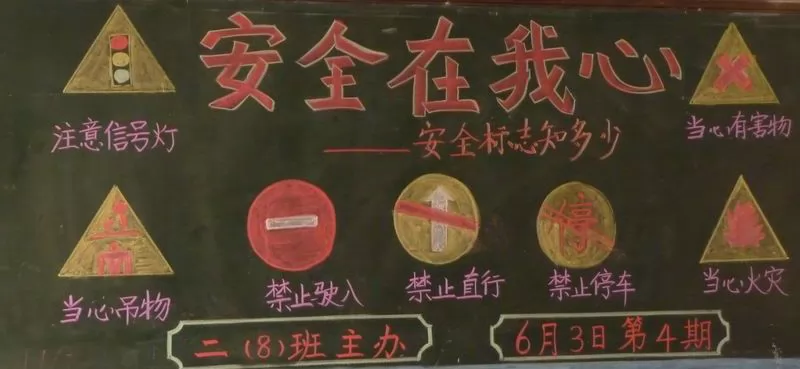 安全在我心
——安全标志知多少
注意信号灯
当心有害物
当心吊物
禁止驶入
禁止直行
停
禁止停车
当心火灾
二(8)班主办
6月3日第4期